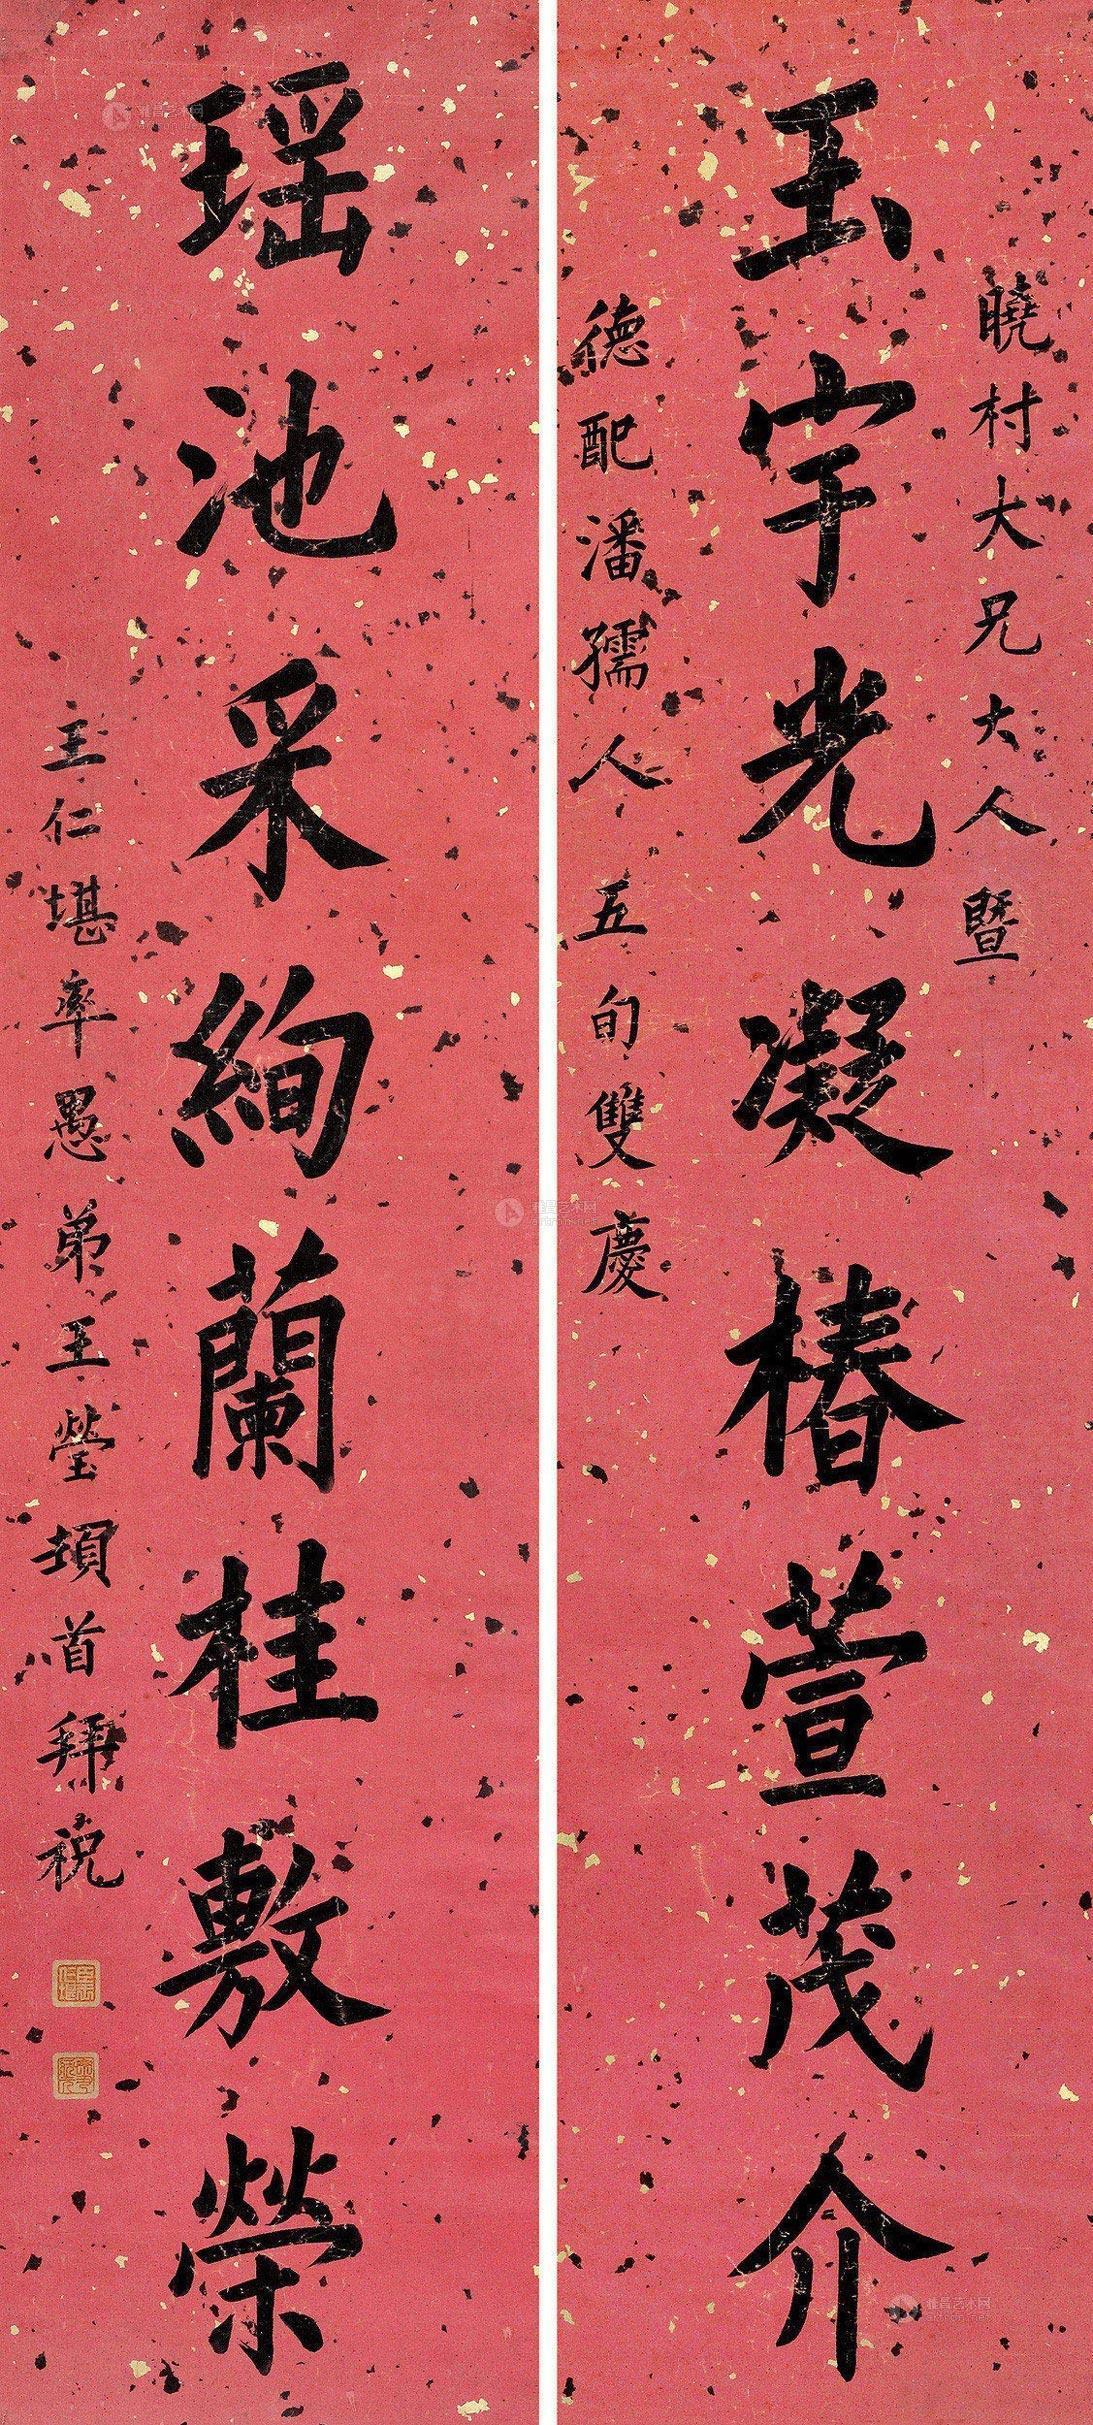 曉村大兄大人暨
玉宇光凝椿萱茂介
德配潘孺人五旬雙慶
瑶池采絢蘭桂敷榮
王仁堪率愚弟王瑩頓首拜祝
雅昌艺术网
artron.net